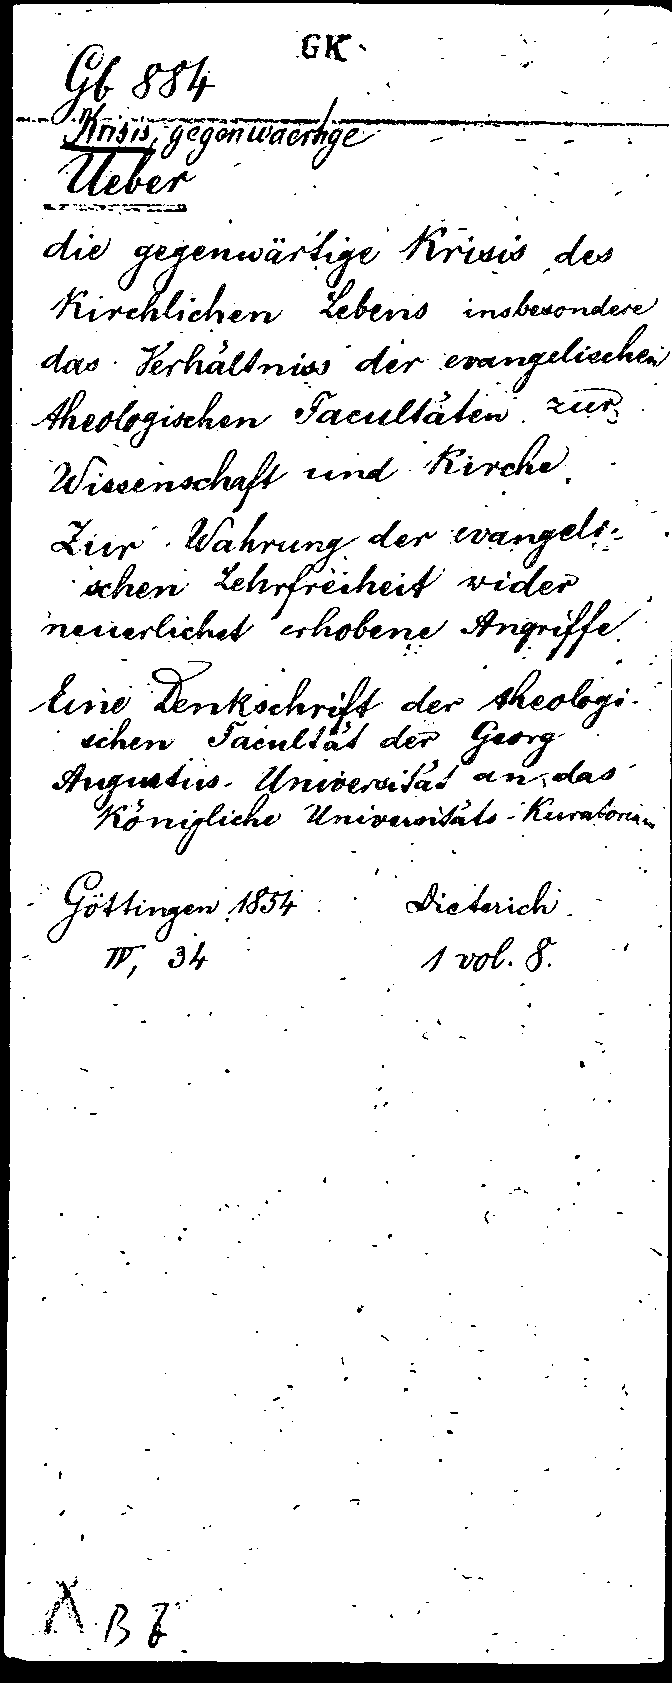 GK
Gb 884
Krisis, gegenwaertige
Ueber
die gegenwärtige Krisis des
Kirchlichen Lebens insbesondere
das Verhältniss der evangelischen
theologischen Facultäten zur
Wissenschaft und Kirche.
Zur Wahrung der evangeli-
schen Lehrfreiheit wider
neuerlichst erhobene Angriffe.
Eine Denkschrift der theologi-
schen Facultät der Georg
Augustus-Universität an das
Königliche Universitäts-Kuratorium
Göttingen 1854 Dieterich.
IV, 34 1 vol. 8.
B